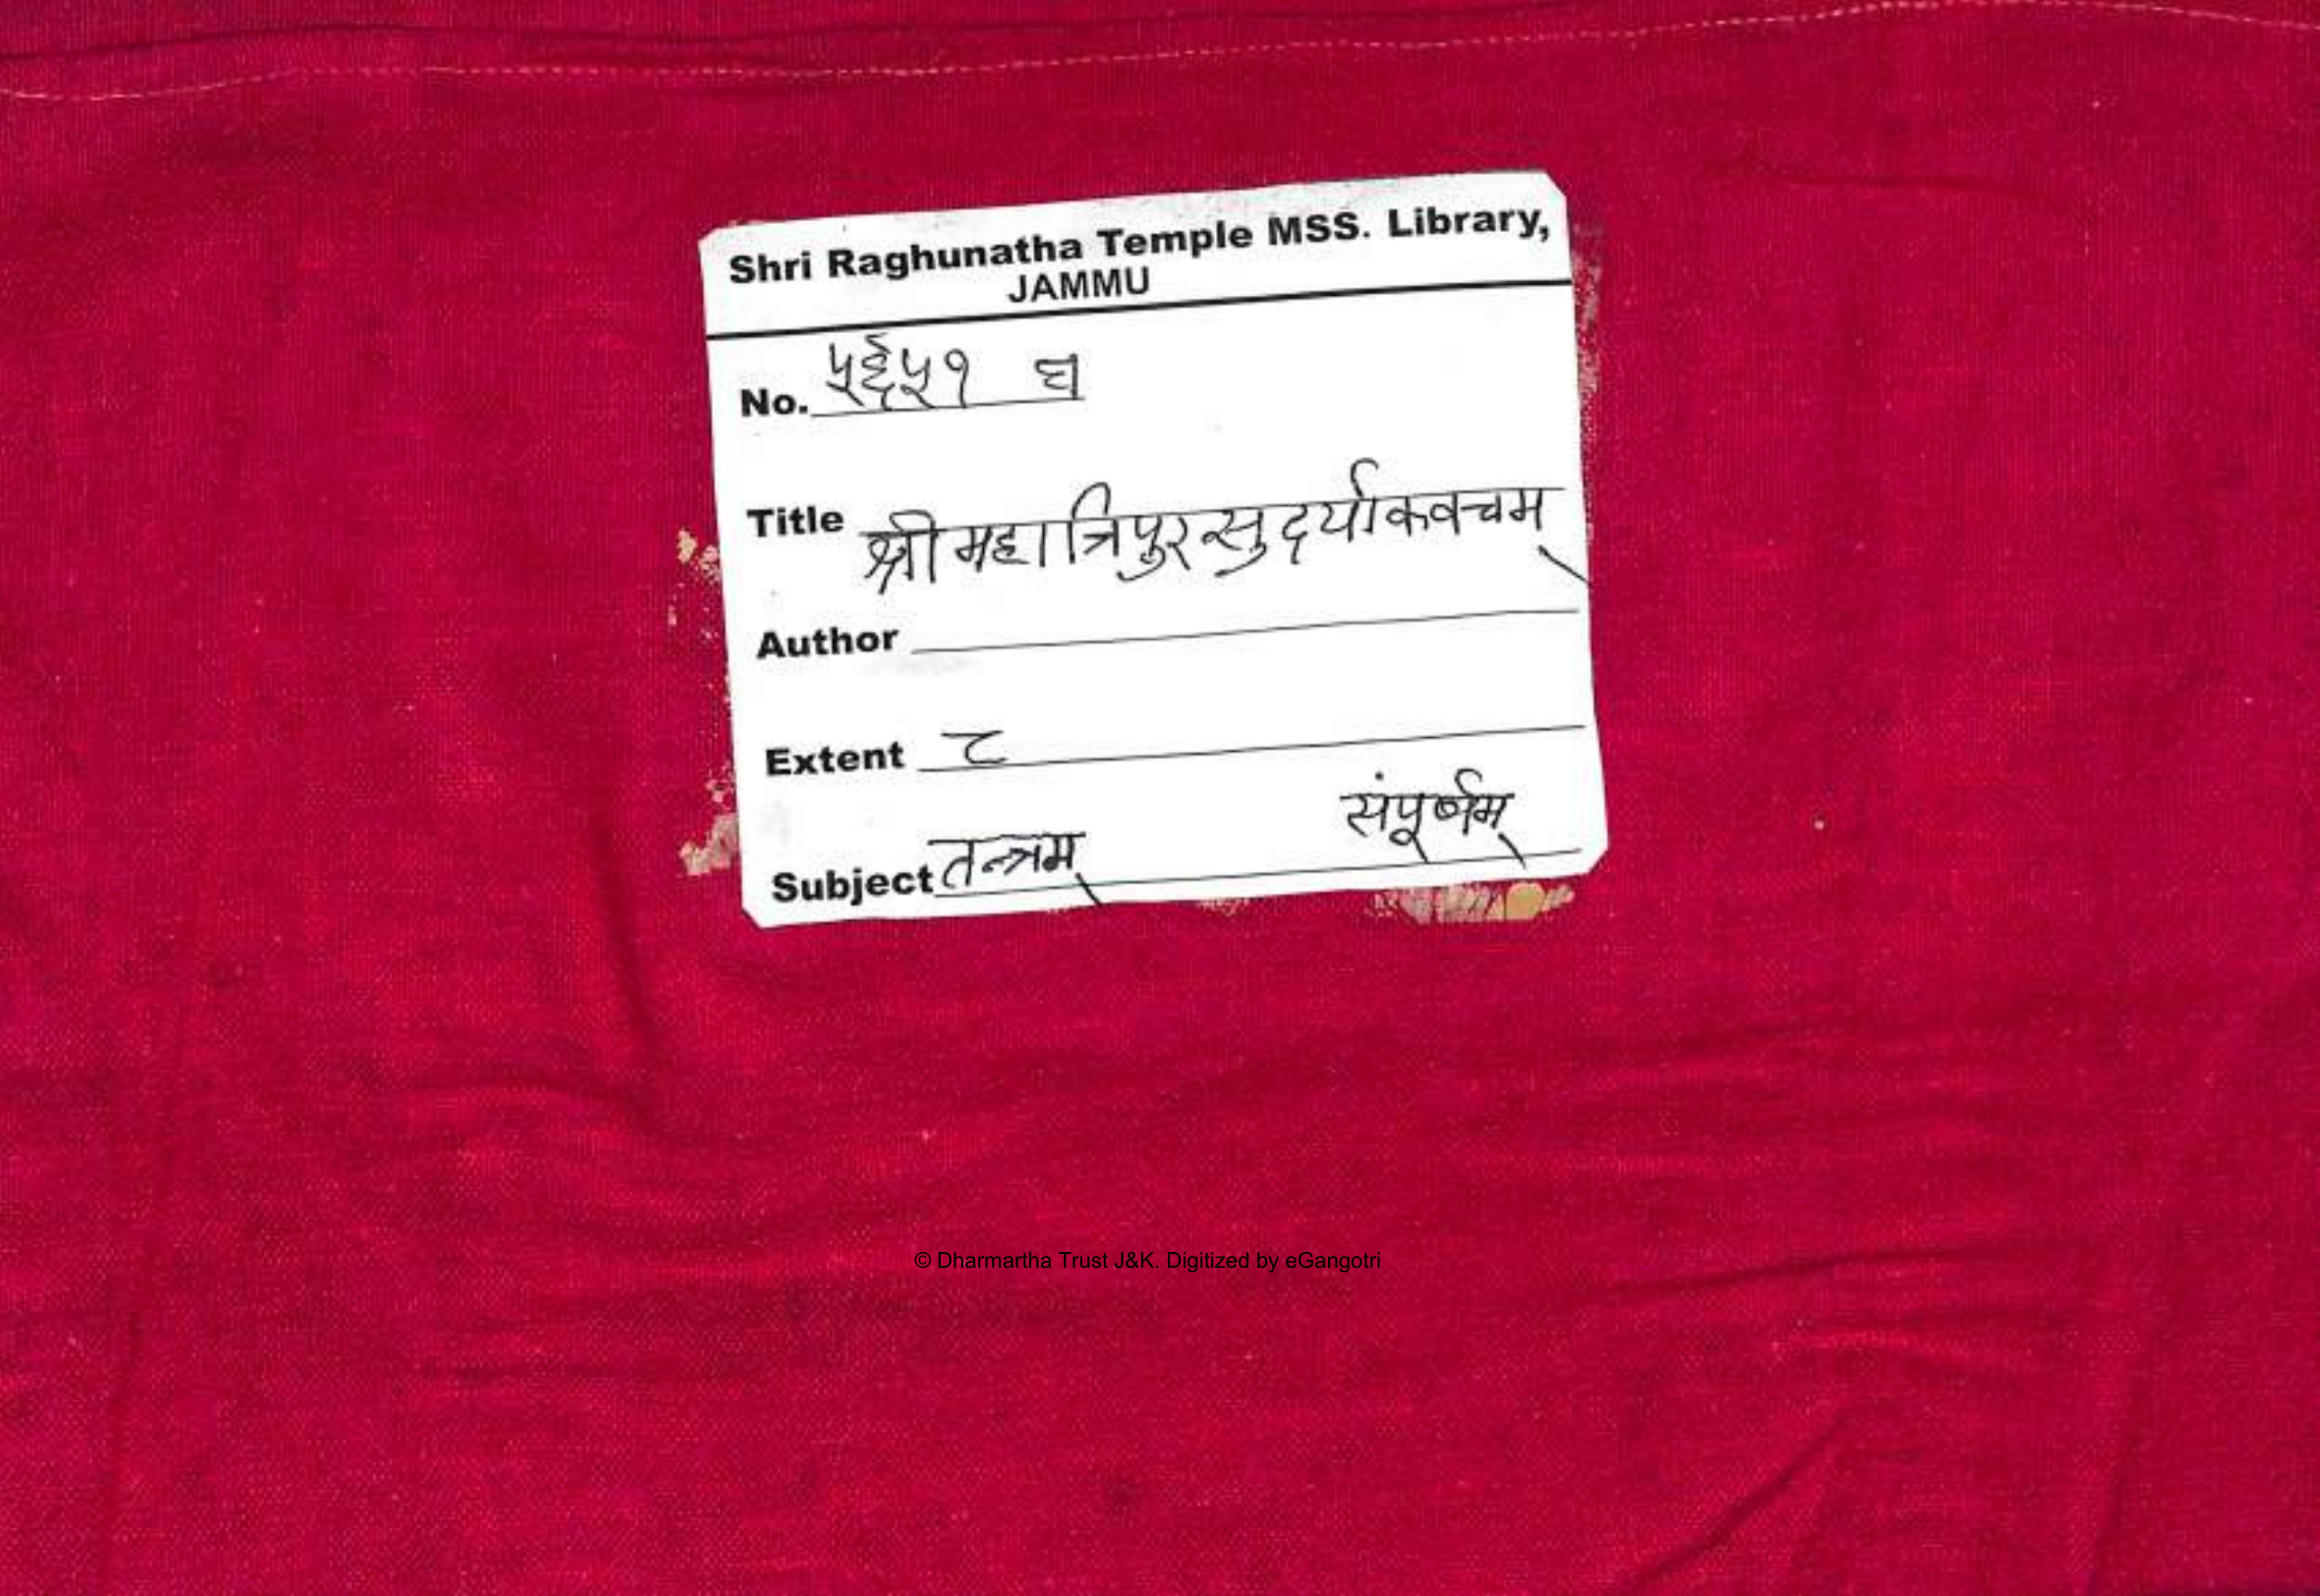 Shri Raghunatha Temple MSS. Library,
JAMMU
No. ५६५१ घ
Title श्रीमहात्रिपुरसुदर्याकवचम्
Author
Extent ८
संपूर्णम्
Subject तन्त्रम्
© Dharmartha Trust J&K. Digitized by eGangotri